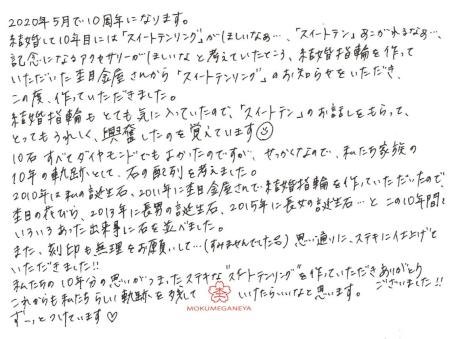 2020年5月で10周年になります。
結婚して10年目には「スイートテンリング」がほしいなぁ…、「スイートテン」あこがれるなぁ…、
記念になるアクセサリーがほしいな と考えていたところ、結婚指輪を作って
いただいた杢目金屋さんから「スイートテンリング」のお知らせをいただき、
この度、作っていただきました。
結婚指輪も とても 気に入っていたので、「スイートテン」のお話しをもらって、
とっても うれしく、興奮したのを覚えています
10石 すべてダイヤモンドでも よかったのですが、せっかくなので、私たち家族の
10年の軌跡として、石の配列を考えました。
2010年は私の誕生石、2011年に杢目金屋さんで結婚指輪を作っていただいたので、
杢目の花びら、2013年に長男の誕生石、2015年に長女の誕生石…と この10年間で
いろいろあった出来事に石を並べました。
また、刻印も無理をお願いして…(すみませんでした) 思い通りに、ステキに仕上げて
いただきました!!
私たちの10年分の思いがつまったステキな"スイートテンリング"を作っていただき ありがとう
ございました!!
これからも私たちらしい軌跡を残して いけたらいいなと思います。
ずーっとつけています♡
MOKUMEGANEYA